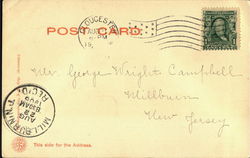 POST CARD.
GLOUCESTER
Mr. George Wright Campbell
Millburn
New Jersey
MILLBURN, N.J.
AUG
830AM
REC'D.
This side for the Address.